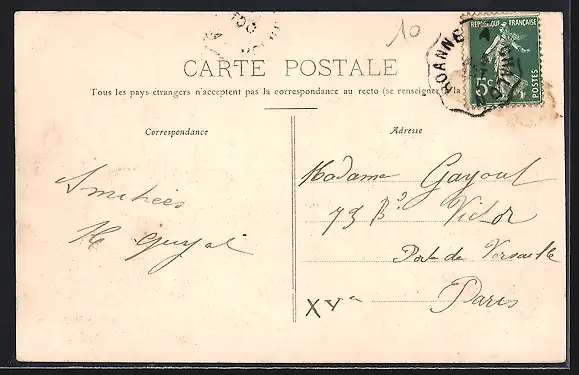 10
REPUBLIQUE FRANÇAISE
5c POSTES
ROANNE A
CARTE POSTALE
Tous les pays étrangers n'acceptent pas la correspondance au recto (se renseigner la
Correspondance
Adresse
Amitiées
Madame Gayout
73 Bd Victor
Porte de Versaille
Paris
XVe